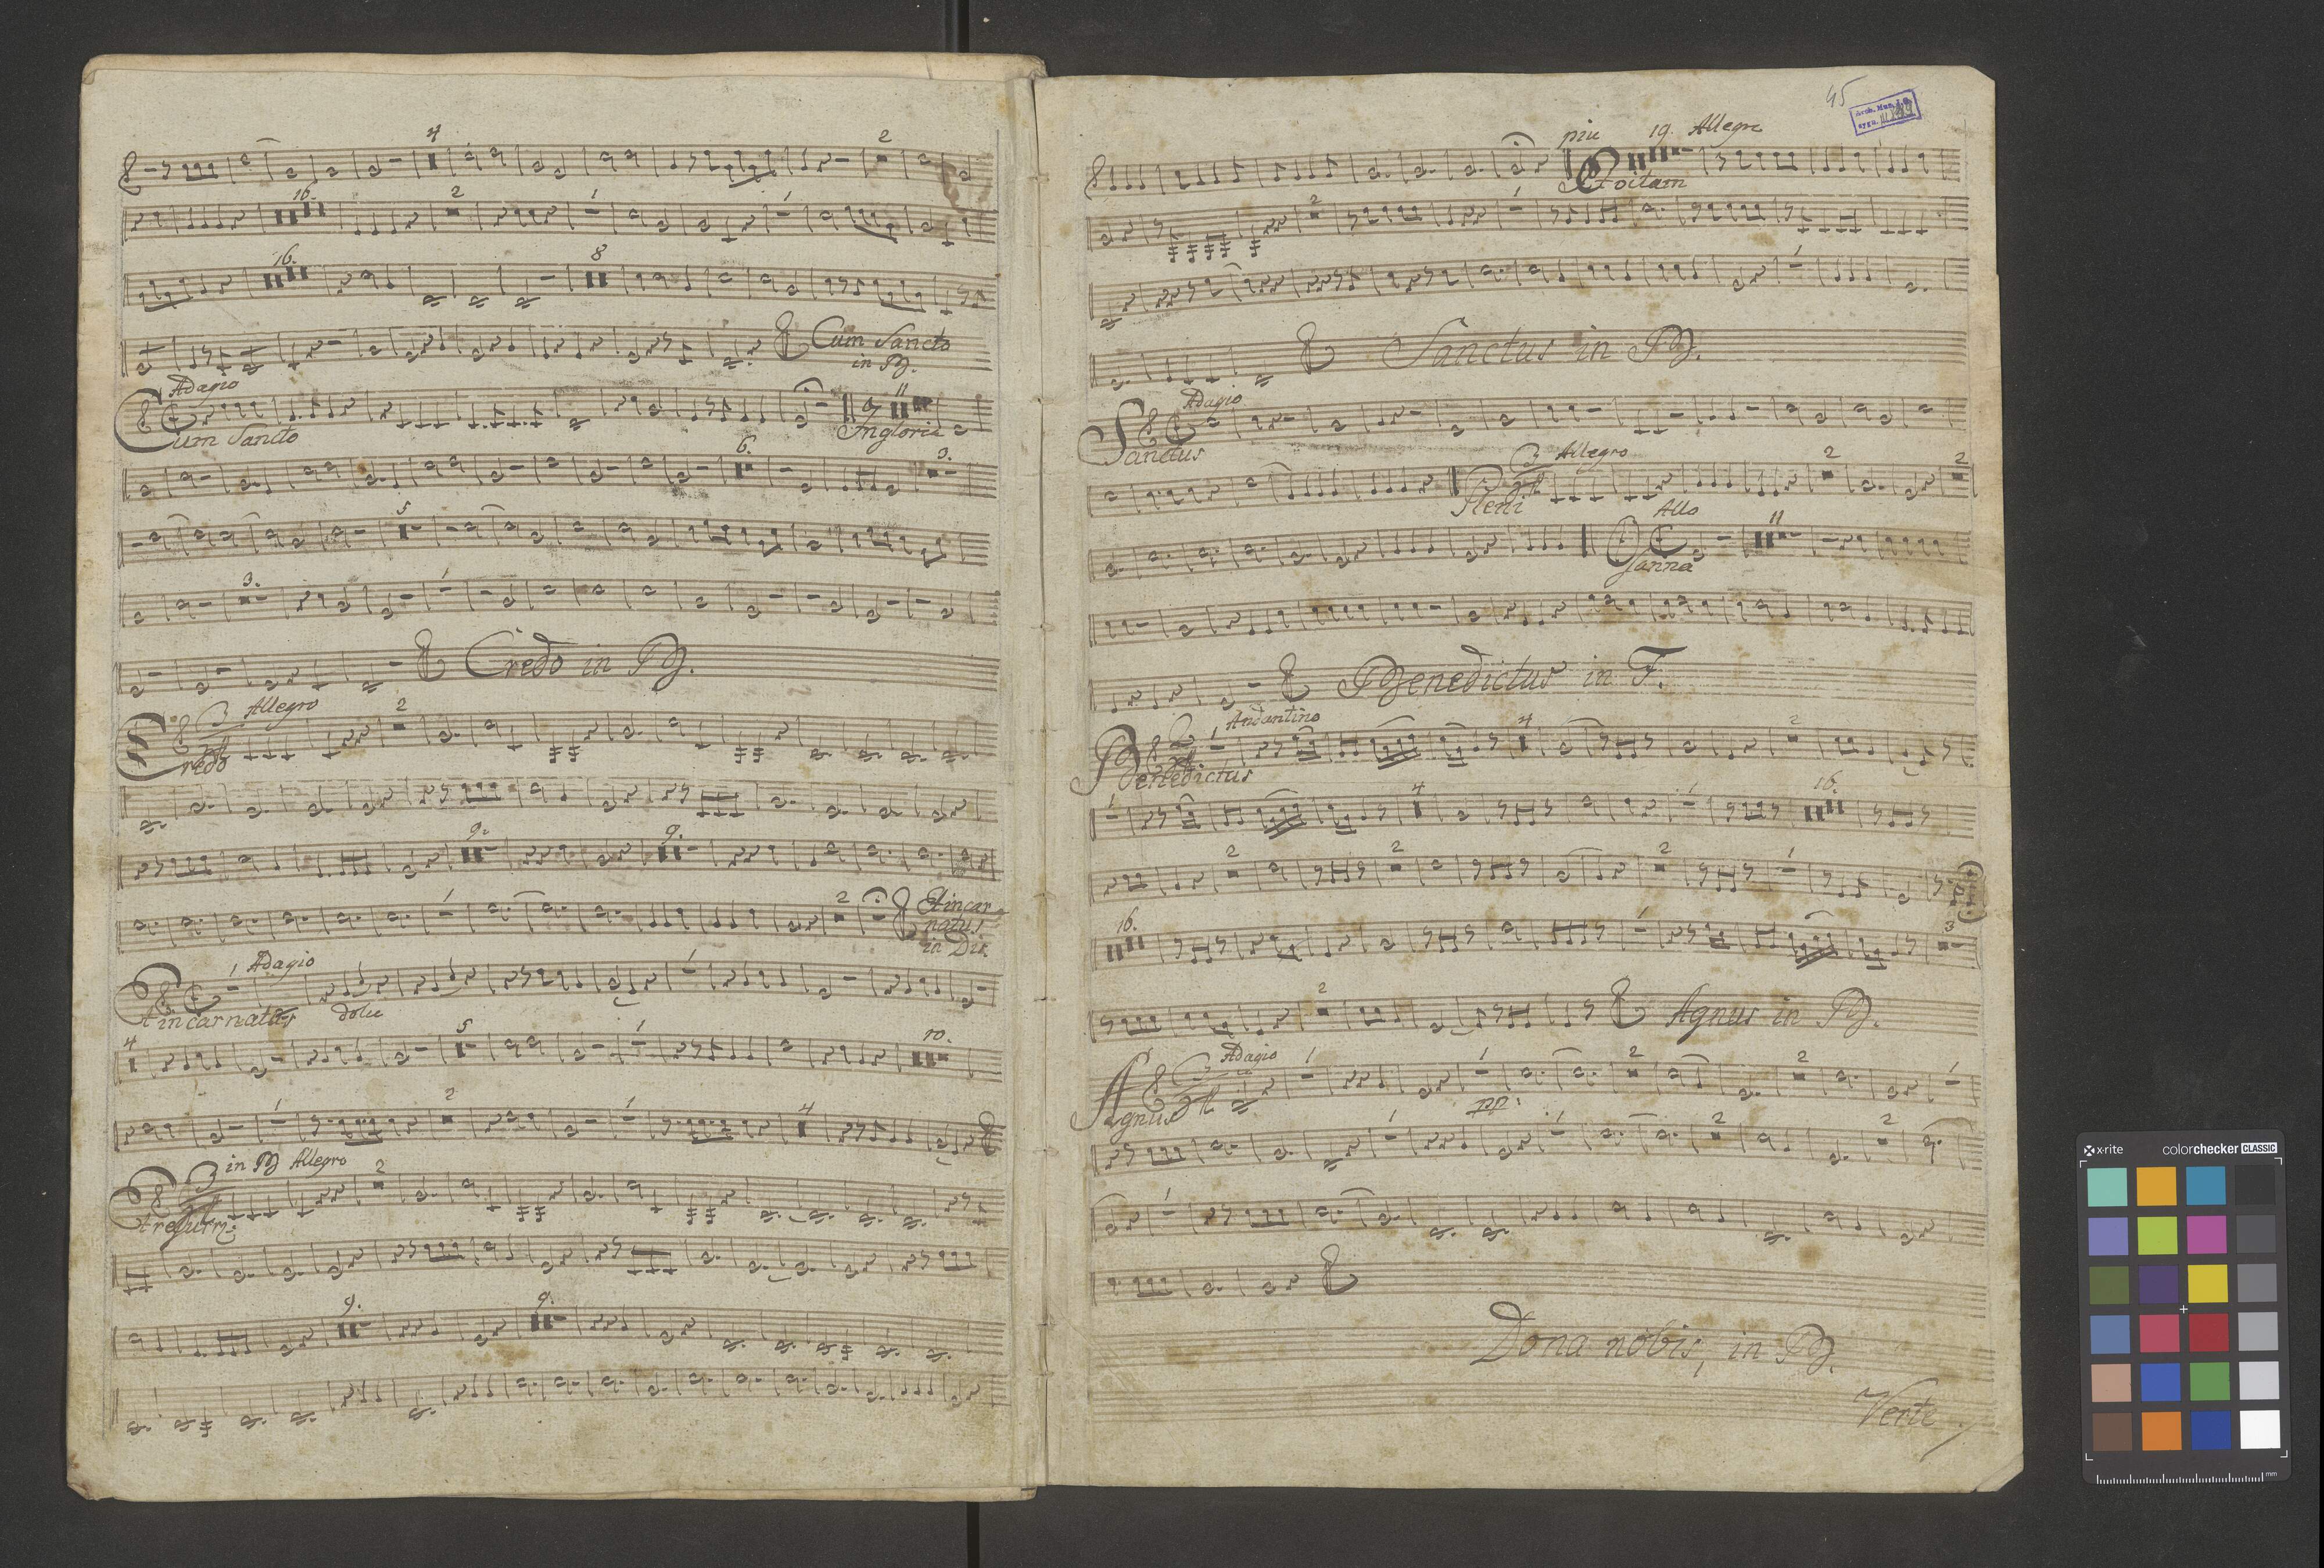 4 2
16. 2 1 1
16. 8
Cum Sancto
in B.
Adagio
Cum Sancto
11
In gloria
6. 3.
5
3. 1
Credo in B.
Allegro
2
Credo
9. 9.
1 2
Et incar=
natus
in Dis.
1 Adagio
Et incarnatus dolce
4 5 1 10.
1 2 1 4
in B Allegro
2
Et resurr:
9. 9.
45
piu 19. Allegro
Et vitam
2 1
1
Sanctus in B.
Adagio
Sanctus
3 Allegro
4
Pleni
2 2
Allo
11
Osanna
Benedictus in F.
Andantino
2
4
1
4 2
Benedictus
1 4 1 16.
2 2 2 1
16. 1 3
2
Agnus in B.
Adagio
3
4
1 1 2 2 1
Agnus
pp:
1 1 2 2
1
Dona nobis, in B.
Verte
x-rite colorchecker CLASSIC
mm